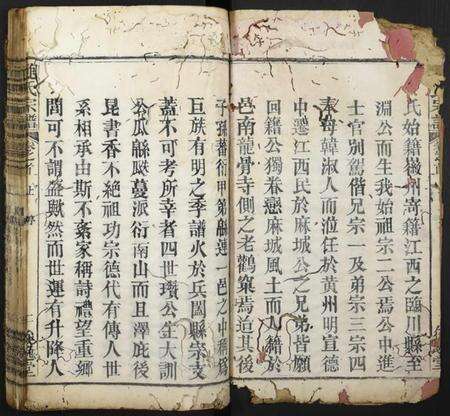 氏始籍徽州嵜籍江西之臨川縣至
淵公而生我始祖宗二公焉公中進
士官别駕偕兄宗一及弟宗三宗四
奉母韓淑人而涖任於黄州明宣德
中遷江西民於麻城公之兄弟皆願
回籍公獨眷戀麻城風土而入緒於
邑南龍骨寺側之老鸛窠焉迨其後
子孫蕃衍甲第緜連一邑之中稱爲
巨族有明之季譜火於兵闔縣宗支
蓋不可考所幸者四世瓚公生大訓
公瓜緜瓞蔓派衍南山而且澤庇後
昆書香不絕祖功宗德代有傳人世
系相承由斯不紊家稱詩禮望重鄉
閭可不謂盛歟然而世運有升降人
宗譜